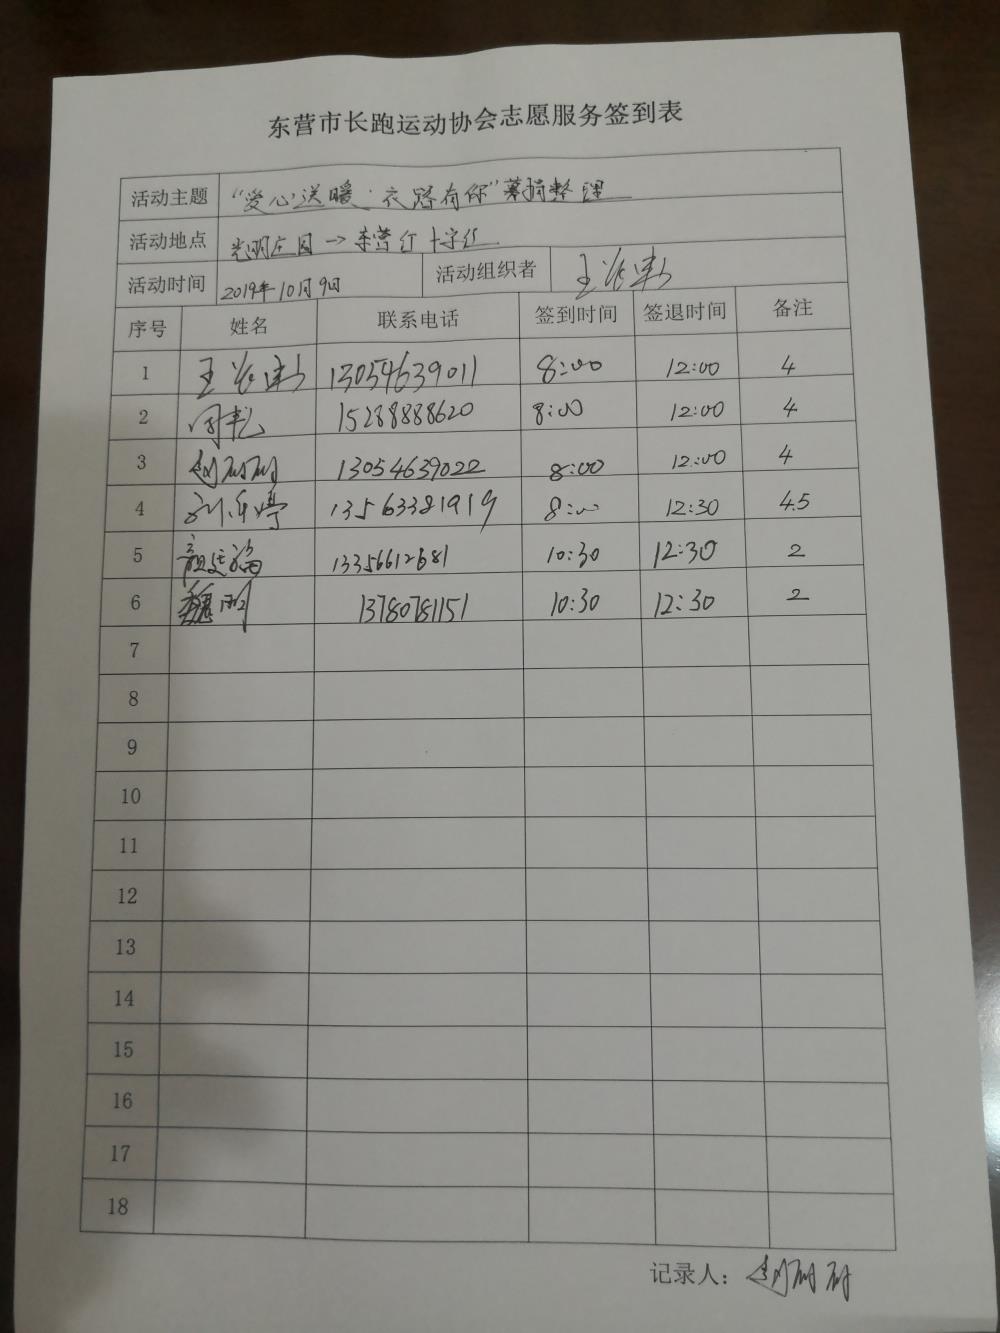 东营市长跑运动协会志愿服务签到表
活动主题 "爱心送暖·衣路有你"募捐整理
活动地点 光明庄园→东营红十字红
活动时间 2019年10月9日 活动组织者 王
序号 姓名 联系电话 签到时间 签退时间 备注
1 王 13054639011 8:00 12:00 4
2 周 15288888620 8:00 12:00 4
3 赵 13054639022 8:00 12:00 4
4 刘 婷 13563381919 8:00 12:30 4.5
5 13356612681 10:30 12:30 2
6 魏明 13780781151 10:30 12:30 2
7
8
9
10
11
12
13
14
15
16
17
18
记录人: 赵